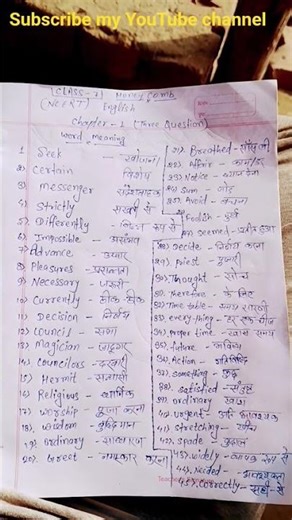 Subscribe my YouTube channel
[CLASS-7] Honey Comb
(NCERT) English
Chapter-1 (Three Question)
Word meaning
1 Seek - खोजना
2) Certain विशेष
3) Messenger संदेशवाहक
4) Strictly सख्ती से
5) Differently
6) Impossible - असंभव
7) Advance -
8) Pleasures - प्रसन्नता
9) Necessary - जरूरी
10) Currently - ठीक-ठीक
11) Decision - निर्णय
12) Council - सभा
13) Magician - जादूगर
14) Councilors - दरबारी
15) Hermit - सन्यासी
16) Religious - धार्मिक
17) Worship - पूजा करना
18) Wisdom - बुद्धिमान
19) Ordinary - साधारण
20) Greet - नमस्कार करना
21) Breathed - साँस ली
22) Affair - काम
23) Notice - ध्यान देना
24) Sum - जोड़
25) Avoid - बचना
Foolish
Seemed - प्रतीत हुआ
28) Decide - निर्णय करना
29) Priest - पुजारी
30) Thought - सोच
31) Therefore - के लिए
32) Time table - समय सारणी
33) every thing - हर एक चीज
34) proper time - खास समय
35) future - भविष्य
36) Action - गतिविधि
37) something - कुछ
38) satisfied - संतुष्ट
39) ordinary -
40) urgent - अति आवश्यक
41) stretching - खींच
42) spade - कुदाल
43) widely - व्यापक रूप से
44) Needed - आवश्यकता
45) Correctly - सही से